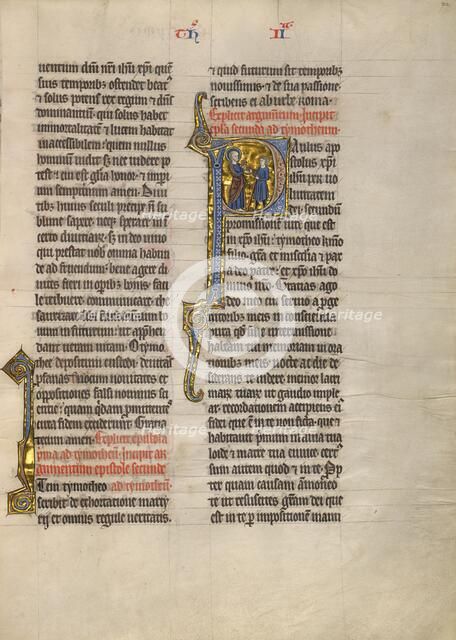 th̕ II
uentum dn̄i nr̄i ihū xp̄i que̅
suis temporibȝ ostendet beat⁹
⁊ solus potens rex regum ⁊ dn̄s
dominantiū qui solus habet
immortalitatē ⁊ lucem habitat
inaccessibilem: quem nullus
hominum uidit sed nec uidere po
test cui est gloria honor ⁊ impi
um sempiternum amen. Diuiti
bus huius seculi precipe nō su
blime sapere: neqȝ sperare in in
certo diuitiarū: sꝫ in deo uiuo
qui prestat nob̄ omnia habun
de ad fruendum: bene agere diui
tes fieri in opibus bonis: faci
le tribuere: communicare: the
saurizare
in futurum: ut appreh̄en
dant ueram uitam. O tymo
thee depositum custodi: deuitās
prophanas uocum nouitates ⁊
oppositiones falsi nominis sci
entie: quam quidam promittētes
circa fidem exciderunt. Gratia
tecum amen. Explicit epistola
prima ad tymotheū. Incipit ar
gumentum epistole secunde
Item tymotheo ad tymotheū.
scribit de exhortatione marty
rij et omnis regule ueritatis.
⁊ quid futurum sit temporibȝ
nouissimis ⁊ de sua passione:
scribens ei ab urbe Roma.
Explicit argumentum. Incipit
epl̄a secunda ad tymotheum.
Paulus apo
stolus xp̄i
ihū per uo
luntatem
dei secundū
promissionē uite que est
in xp̄o ihū: tymotheo kmo
filio: gr̄a ⁊ misericordia ⁊ pax
a deo patre: et xp̄o ihū do
mino nr̄o. Gratias ago
deo meo cui seruio a proge
nitoribȝ meis in conscientia
pura qd̄ sine intermissione
habeam tui memoriam in ora
tionibȝ meis: nocte ac die de
siderans te uidere: memor lacri
marū tuarū ut gaudio implear
recordationem accipiens ei⁹
fidei que est in te non ficta: que ⁊
habitauit primum in auia tua
loide ⁊ matre tua eunice: cer
tus sum autem quod ⁊ in te. Pp̄
ter quam causam ammoneo
te ut resuscites gr̄am dei que
est in te per impositionem manu
heritage-images.com
Heritage
Images
heritage-images.com